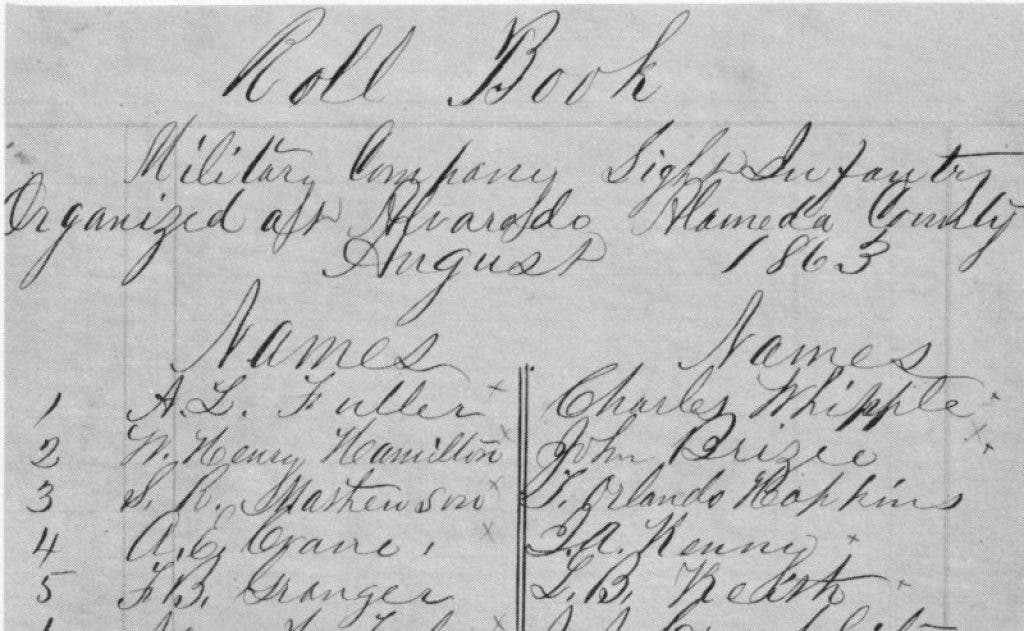 Roll Book
Military Company Light Infantry
Organized at Alvarado Alameda County
August 1863
Names Names
1 A. L. Fuller x Charles Whipple x
2 W. Henry Hamilton x John Brizee x
3 S. R. Mathewson x T. Orlando Hopkins
4 A. C. Crane x Kenny x
5 F. B. Granger L. B. x